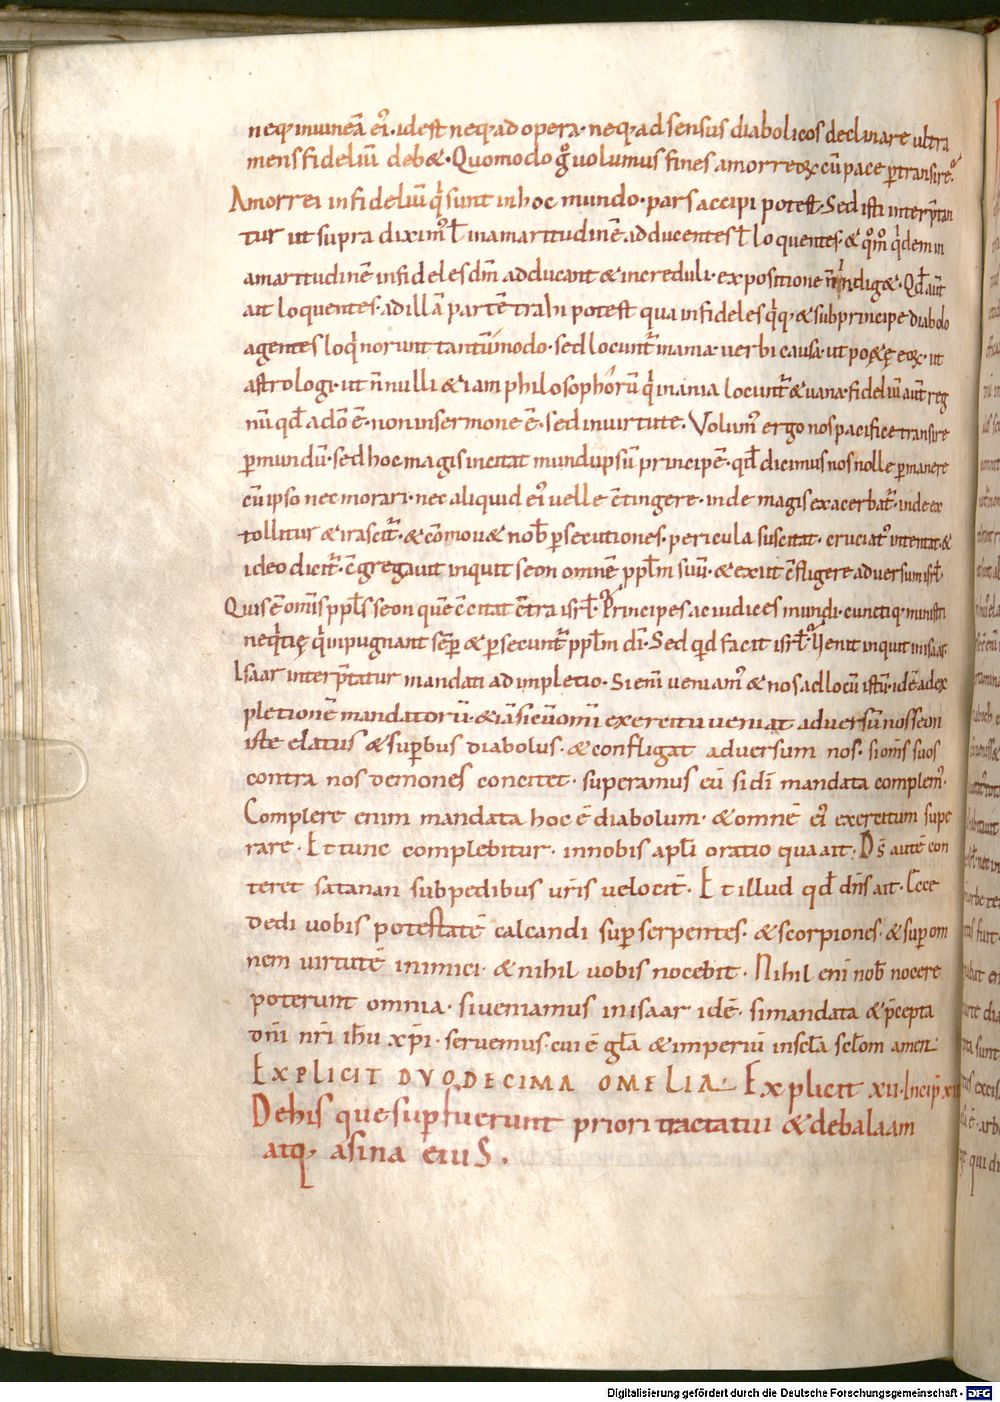 neq; inuineā ei᷒. idest neq; ad opera. neq; ad sensus diabolicos declinare ultra
mens fideliū deb&. Quomodo g̊ uolumus fines amorreoꝝ cū pace ꝑtransire.
Amorrei infideliū q̇ sunt in hoc mundo. pars accipi potest. Sed isti interp̄tan
tur ut supra diximꝰ ł in amaritudinē adducentes ł loquentes. & qm̄ q̇dem in
amaritudinē infideles dm̄ adducant & increduli. expositione n̄ indig&. Qd̄ aut̄
ait loquentes. ad illā partē trahi potest qua infideles q̇q; & sub principe diabolo
agentes loq̇ norunt tantūmodo. sed locunt᷑ inania uerbi causa. ut po&ę eoꝝ. ut
astrologi. ut n̄nulli & iam philosophorū q̇ inania locunt᷑ & uana. fideliū aut̄ reg
nū qd̄ ad dō ē. non in sermone ē. sed in uirtute. Volumꝰ ergo nos pacifice transire
ꝑ mundū. sed hoc magis incitat mundi ipsū principē. qd̄ dicimus nos nolle ꝑmanere
cū ipso nec morari. nec aliquid ei᷒ uelle c̄tingere. inde magis exacerbat᷑. inde ex
tollitur & irascit᷑. & cōmou& nob̄ ꝑsecutiones. pericula suscitat. cruciatꝰ intentat. &
ideo dicit᷑. c̄gregauit inquit seon omnē pplm̄ suū. & exiit c̄fligere aduersum isrł.
Quis ē om̄is ppls̄ seon quē c̄citat c̄tra isrł. Principes ac iudices mundi. cunctiq; ministri
neq̇tię q̇ inpugnant semꝑ & ꝑsecunt᷑ pplm̄ dī. Sed qd facit isrł. Uenit inquit in isaar.
Isaar interp̄tatur mandati adimpletio. Si enī ueniamꝰ & nos ad locū istū. id ē ad ex
pletionē mandatorū. & iā si cū omī exercitu ueniat aduersū nos seon
iste elatus & suꝑbus diabolus. & confligat aduersum nos. si om̄s suos
contra nos demones concitet. superamus eū si dī mandata complemꝰ.
Complere enim mandata hoc ē diabolum. & omnē ei᷒ exercitum supe
rare. Et tunc complebitur. in nobis apłi oratio qua ait. Ds̄ autē con
teret satanan sub pedibus uris̄ uelocit̄. Et illud qd̄ dn̄s ait. Ecce
dedi uobis potestatē calcandi suꝑ serpentes. & scorpiones. & suꝑ om
nem uirtutē inimici. & nihil uobis nocebit. Nihil enī nob̄ nocere
poterunt omnia. si ueniamus in isaar id ē. si mandata & p̄cepta
dnī nrī ihū xpī. seruemus: cui ē głā & imperiū in scła scłom amen.
EXPLICIT DVODECIMA OMELIA. Explicit xii. Incip̄ xiii
De his que suꝑ fuerunt priori tractatui & de balaam
atq; asina eius.